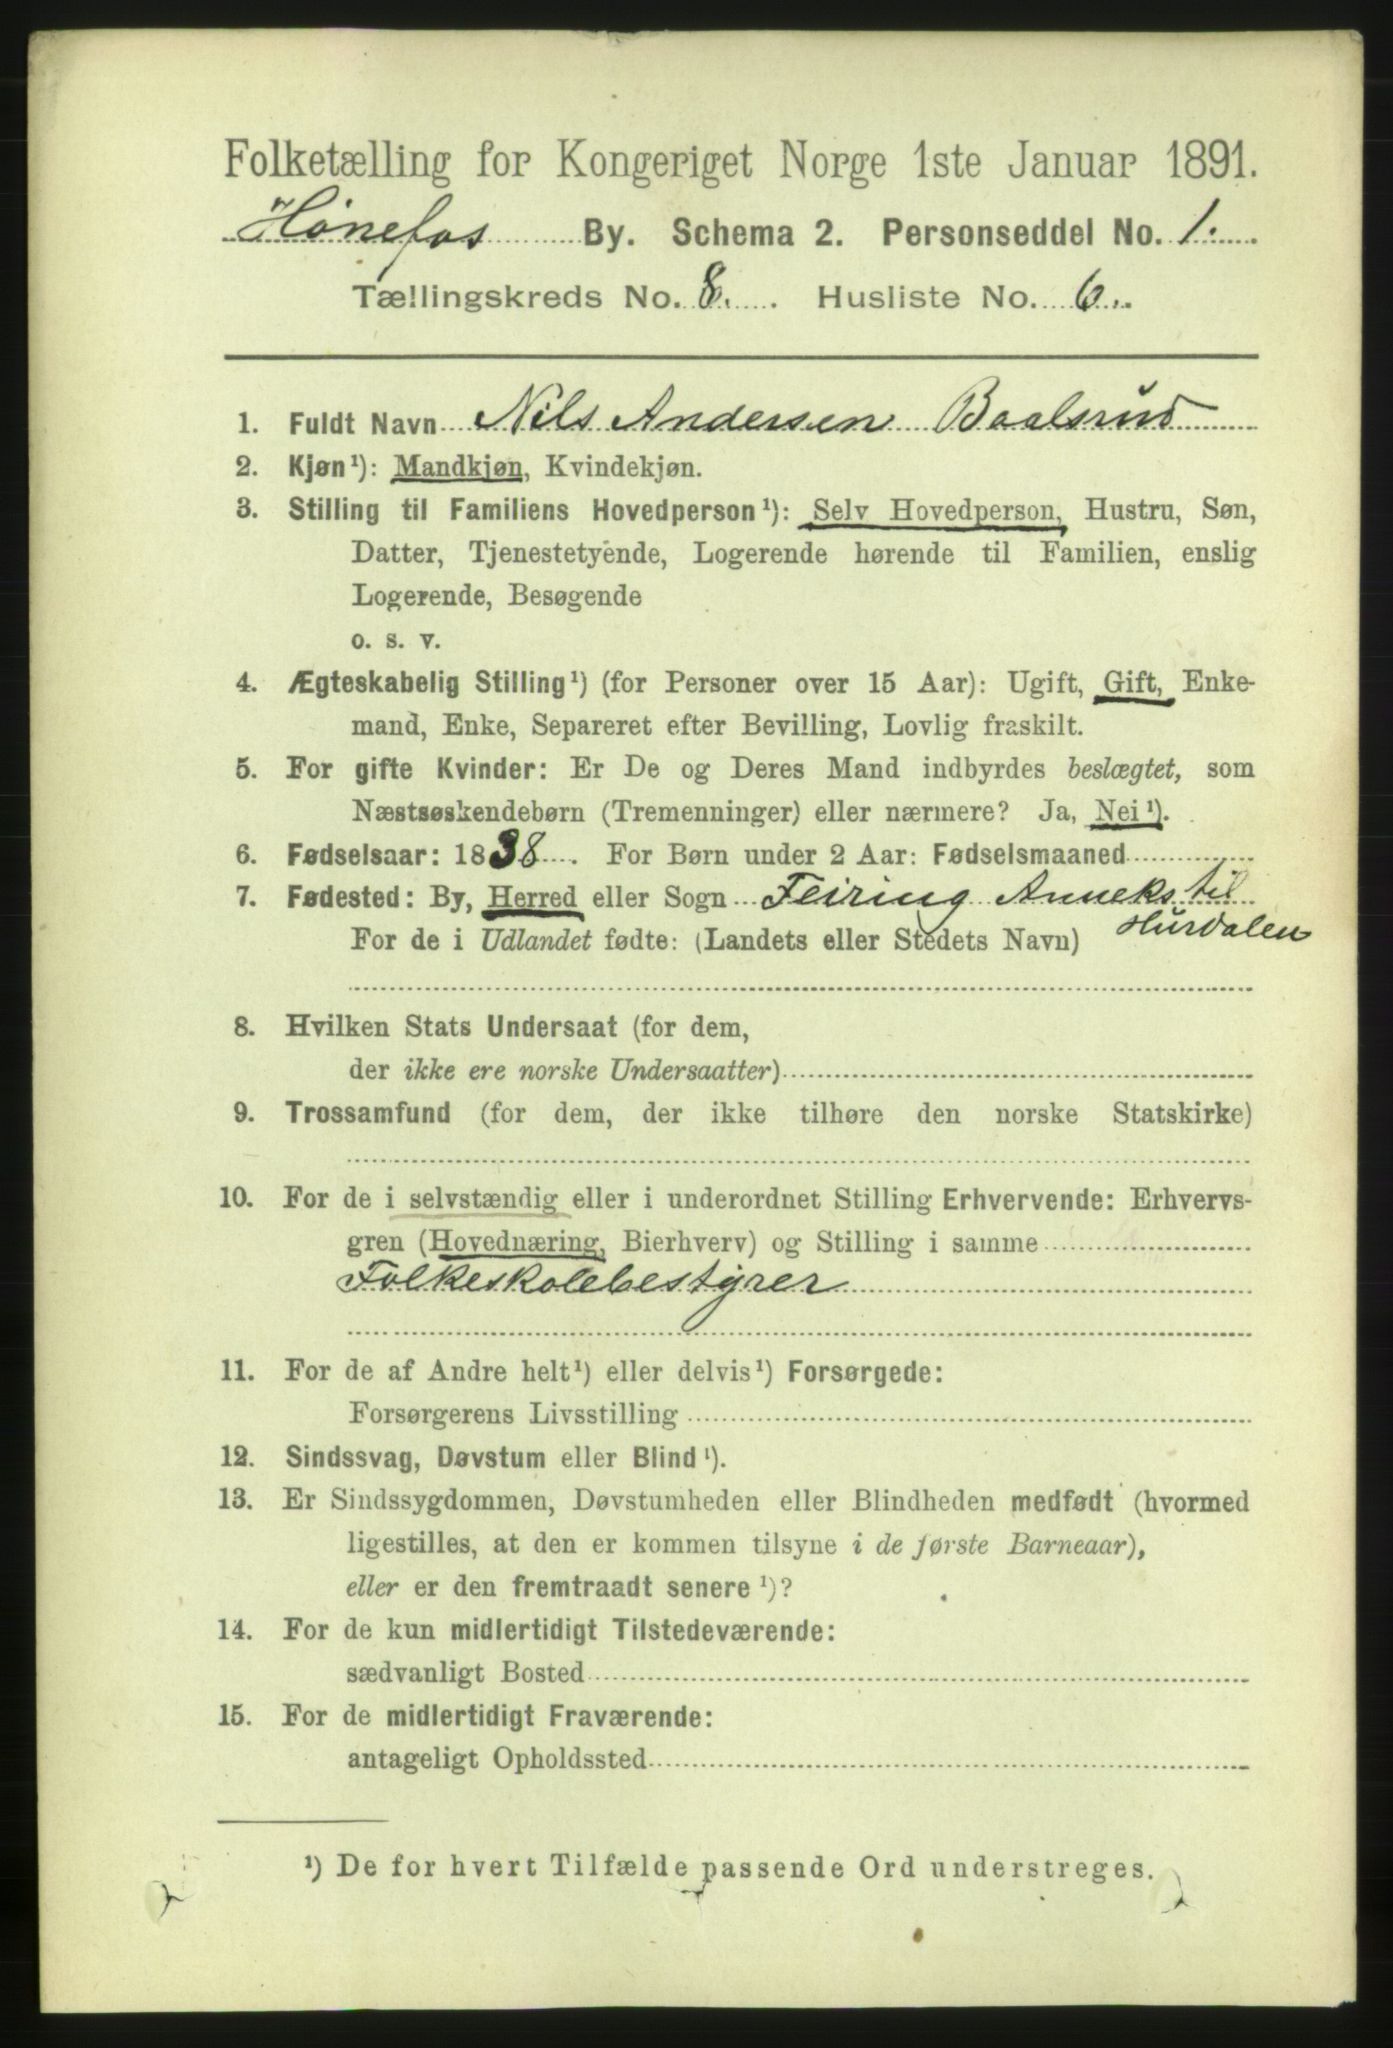 Folketælling for Kongeriget Norge 1ste Januar 1891.
Hønefos By. Schema 2. Personseddel No. 1.
Tællingskreds No. 8. Husliste No. 6.
1. Fuldt Navn Nils Andersen Baalsrud
2. Kjøn¹): Mandkjøn, Kvindekjøn.
3. Stilling til Familiens Hovedperson¹): Selv Hovedperson, Hustru, Søn,
Datter, Tjenestetyende, Logerende hørende til Familien, enslig
Logerende, Besøgende
o. s. v.
4. Ægteskabelig Stilling¹) (for Personer over 15 Aar): Ugift, Gift, Enke-
mand, Enke, Separeret efter Bevilling, Lovlig fraskilt.
5. For gifte Kvinder: Er De og Deres Mand indbyrdes beslægtet, som
Næstsøskendebørn (Tremenninger) eller nærmere? Ja, Nei¹).
6. Fødselsaar: 1838. For Børn under 2 Aar: Fødselsmaaned
7. Fødested: By, Herred eller Sogn Feiring Anneks til
Hurdalen
For de i Udlandet fødte: (Landets eller Stedets Navn)
8. Hvilken Stats Undersaat (for dem,
der ikke ere norske Undersaatter)
9. Trossamfund (for dem, der ikke tilhøre den norske Statskirke)
10. For de i selvstændig eller i underordnet Stilling Erhvervende: Erhvervs-
gren (Hovednæring, Bierhverv) og Stilling i samme
Folkeskolebestyrer
11. For de af Andre helt¹) eller delvis¹) Forsørgede:
Forsørgerens Livsstilling
12. Sindssvag, Døvstum eller Blind¹).
13. Er Sindssygdommen, Døvstumheden eller Blindheden medfødt (hvormed
ligestilles, at den er kommen tilsyne i de første Barneaar),
eller er den fremtraadt senere¹)?
14. For de kun midlertidigt Tilstedeværende:
sædvanligt Bosted
15. For de midlertidigt Fraværende:
antageligt Opholdssted
¹) De for hvert Tilfælde passende Ord understreges.